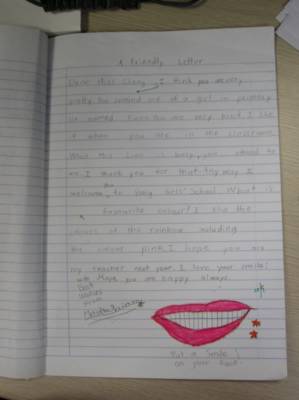 A Friendly Letter
Dear Miss, I think you are very
pretty. You remind me of a girl in primary
You are very kind. I like
it when you are in the classroom.
When Miss is busy, you attend to
us. I thank you for that. May I
welcome you to Girls' School. What is
favourite colour? I like the
colours of the rainbow including
the colour pink. I hope you are
my teacher next year. I love your smile!
I hope you are happy always.
Best
wishes
from
Put a smile
on your face.